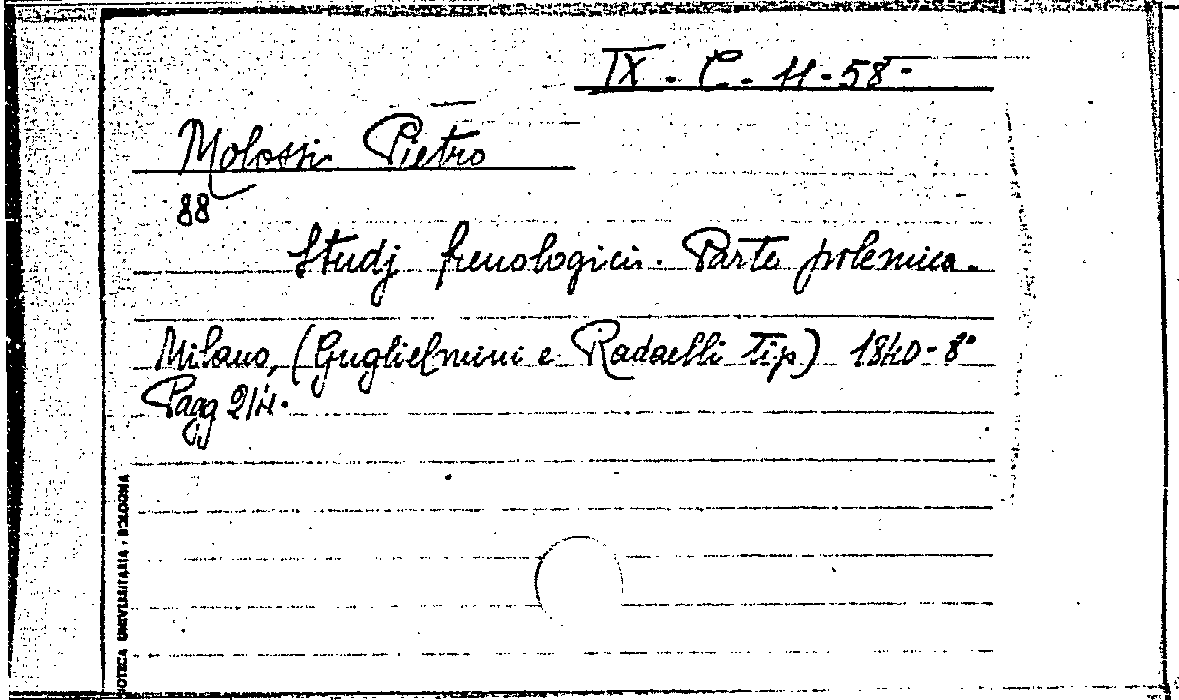 IX. C. 11-58-
Molossi Pietro
88
Studj frenologici. Parte polemica.
Milano, (Guglielmini e Radaelli tip) 1840-8°
Pagg 214.
OTECA UNIVERSITARIA, BOLOGNA